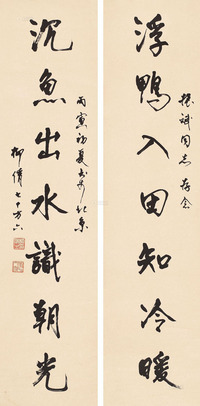 浮鸭入田知冷暖
振斌同志存念
沉魚出水識朝光
丙寅初夏书于北京
柳倩七十有六